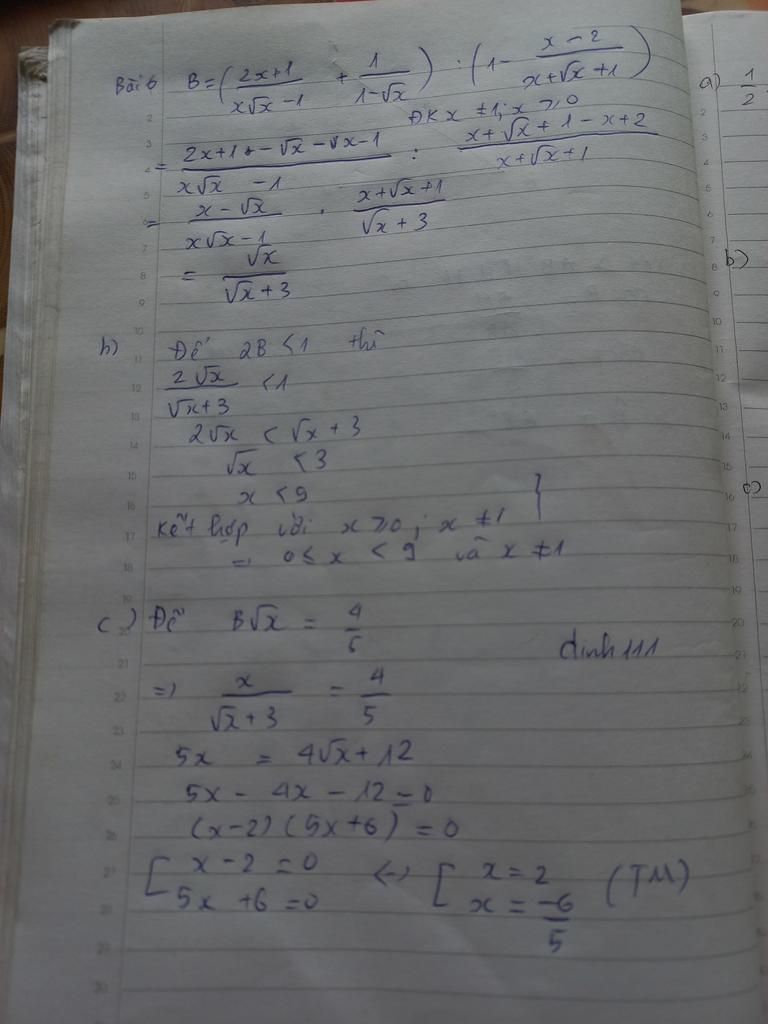 Bài 6 B = ( \frac{2x+1}{x√x-1} + \frac{1}{1-√x} ) : ( 1 - \frac{x-2}{x+√x+1} )
ĐK x ≠ 1; x ≥ 0
= \frac{2x+1+-√x-√x-1}{x√x-1} : \frac{x+√x+1-x+2}{x+√x+1}
= \frac{x-√x}{x√x-1} . \frac{x+√x+1}{√x+3}
= \frac{√x}{√x+3}
b) Để 2B < 1 thì
\frac{2√x}{√x+3} < 1
2√x < √x + 3
√x < 3
x < 9
Kết hợp với x ≥ 0; x ≠ 1 }
=> 0 ≤ x < 9 và x ≠ 1
c) Để B√x = \frac{4}{5}
dinh 111
=> \frac{x}{√x+3} = \frac{4}{5}
5x = 4√x + 12
5x - 4x - 12 = 0
(x-2) (5x+6) = 0
[ x - 2 = 0 <-> [ x = 2 (TM)
5x + 6 = 0 x = \frac{-6}{5}
a) \frac{1}{2}
b)
c)